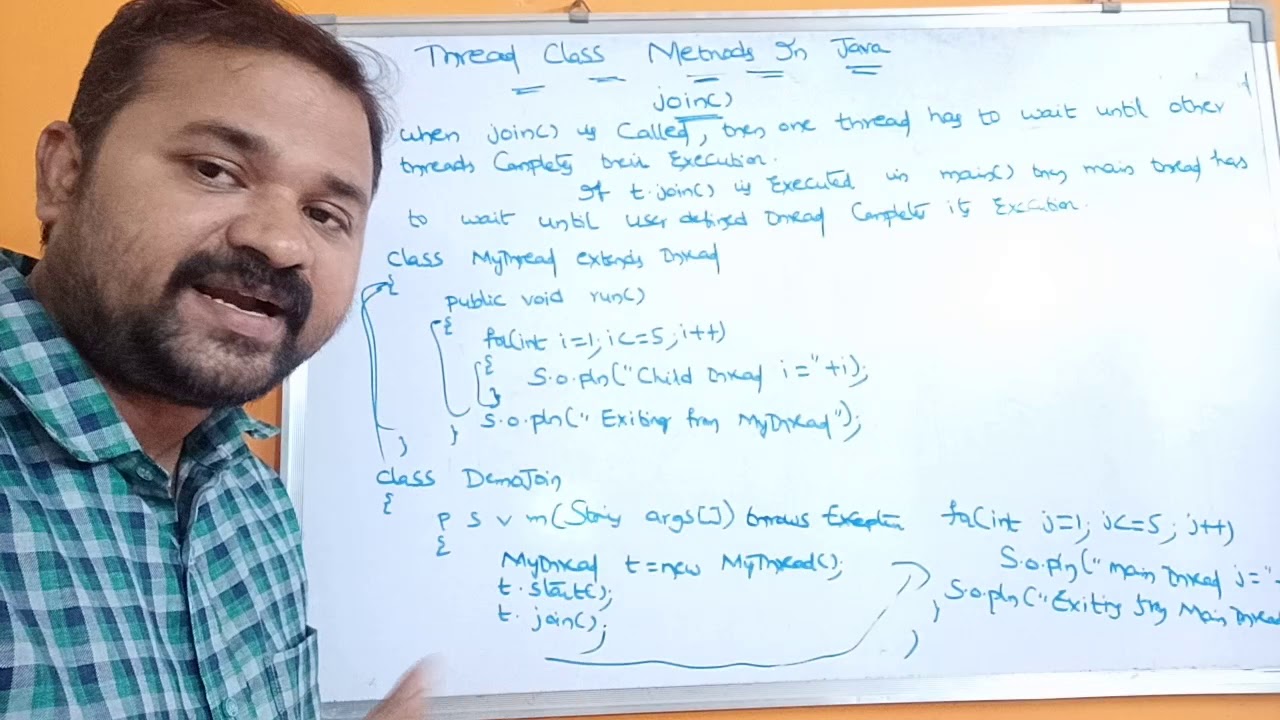 Thread Class Methods In Java
join()
when join() is Called, then one thread has to wait until other
threads Completes their Execution.
If t.join() is Executed in main() then main thread has
to wait until user defined thread Completes its Execution.
class MyThread extends Thread
{
public void run()
{
for(int i=1; i<=5; i++)
{
S.o.pln("Child thread i="+i);
}
S.o.pln("Exiting from MyThread");
}
}
class DemoJoin
{
p s v m(String args[]) throws Exception
{
MyThread t=new MyThread();
t.start();
t.join();
for(int j=1; j<=5; j++)
S.o.pln("main thread j="
S.o.pln("Exiting from Main Thread
}
}